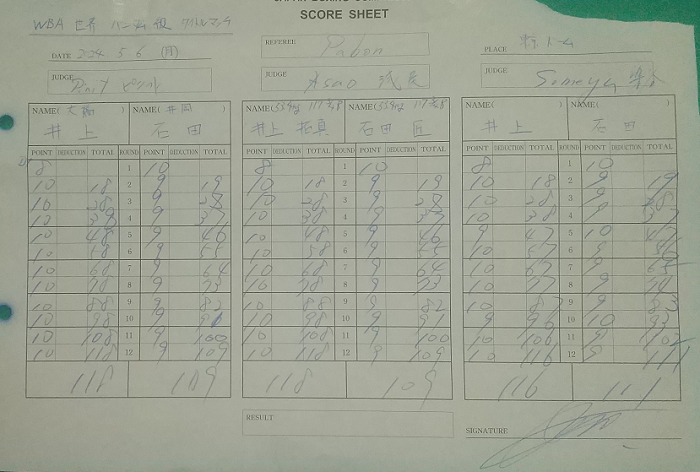 SCORE SHEET
WBA 世界 バンタム級 タイトルマッチ
DATE 2024 5 6 (月)
REFEREE Pabon
PLACE 東京ドーム
JUDGE
JUDGE Asao
JUDGE Someya
NAME(大阪) NAME(井岡) NAME( 117 NAME( 117 NAME( ) NAME( )
井上 石田 井上 拓真 石田 匠 井上 石田
POINT DEDUCTION TOTAL ROUND POINT DEDUCTION TOTAL POINT DEDUCTION TOTAL ROUND POINT DEDUCTION TOTAL POINT DEDUCTION TOTAL ROUND POINT DEDUCTION TOTAL
8 1 10 8 1 10 8 1 10
10 18 2 9 19 10 18 2 9 19 10 18 2 9 19
10 28 3 9 28 10 28 3 9 28 10 28 3 9 28
10 38 4 9 37 10 38 4 9 37 10 38 4 9 37
10 48 5 9 46 10 48 5 9 46 9 47 5 10 47
10 58 6 9 55 10 58 6 9 55 10 57 6 9 56
10 68 7 9 64 10 68 7 9 64 10 67 7 9 65
10 78 8 9 73 10 78 8 9 73 10 77 8 9 74
10 88 9 9 82 10 88 9 9 82 10 87 9 9 83
10 98 10 9 91 10 98 10 9 91 9 96 10 10 93
10 108 11 9 100 10 108 11 9 100 10 106 11 9 102
10 118 12 9 109 10 118 12 9 109 10 116 12 9 111
118 109 118 109 116 111
RESULT
SIGNATURE